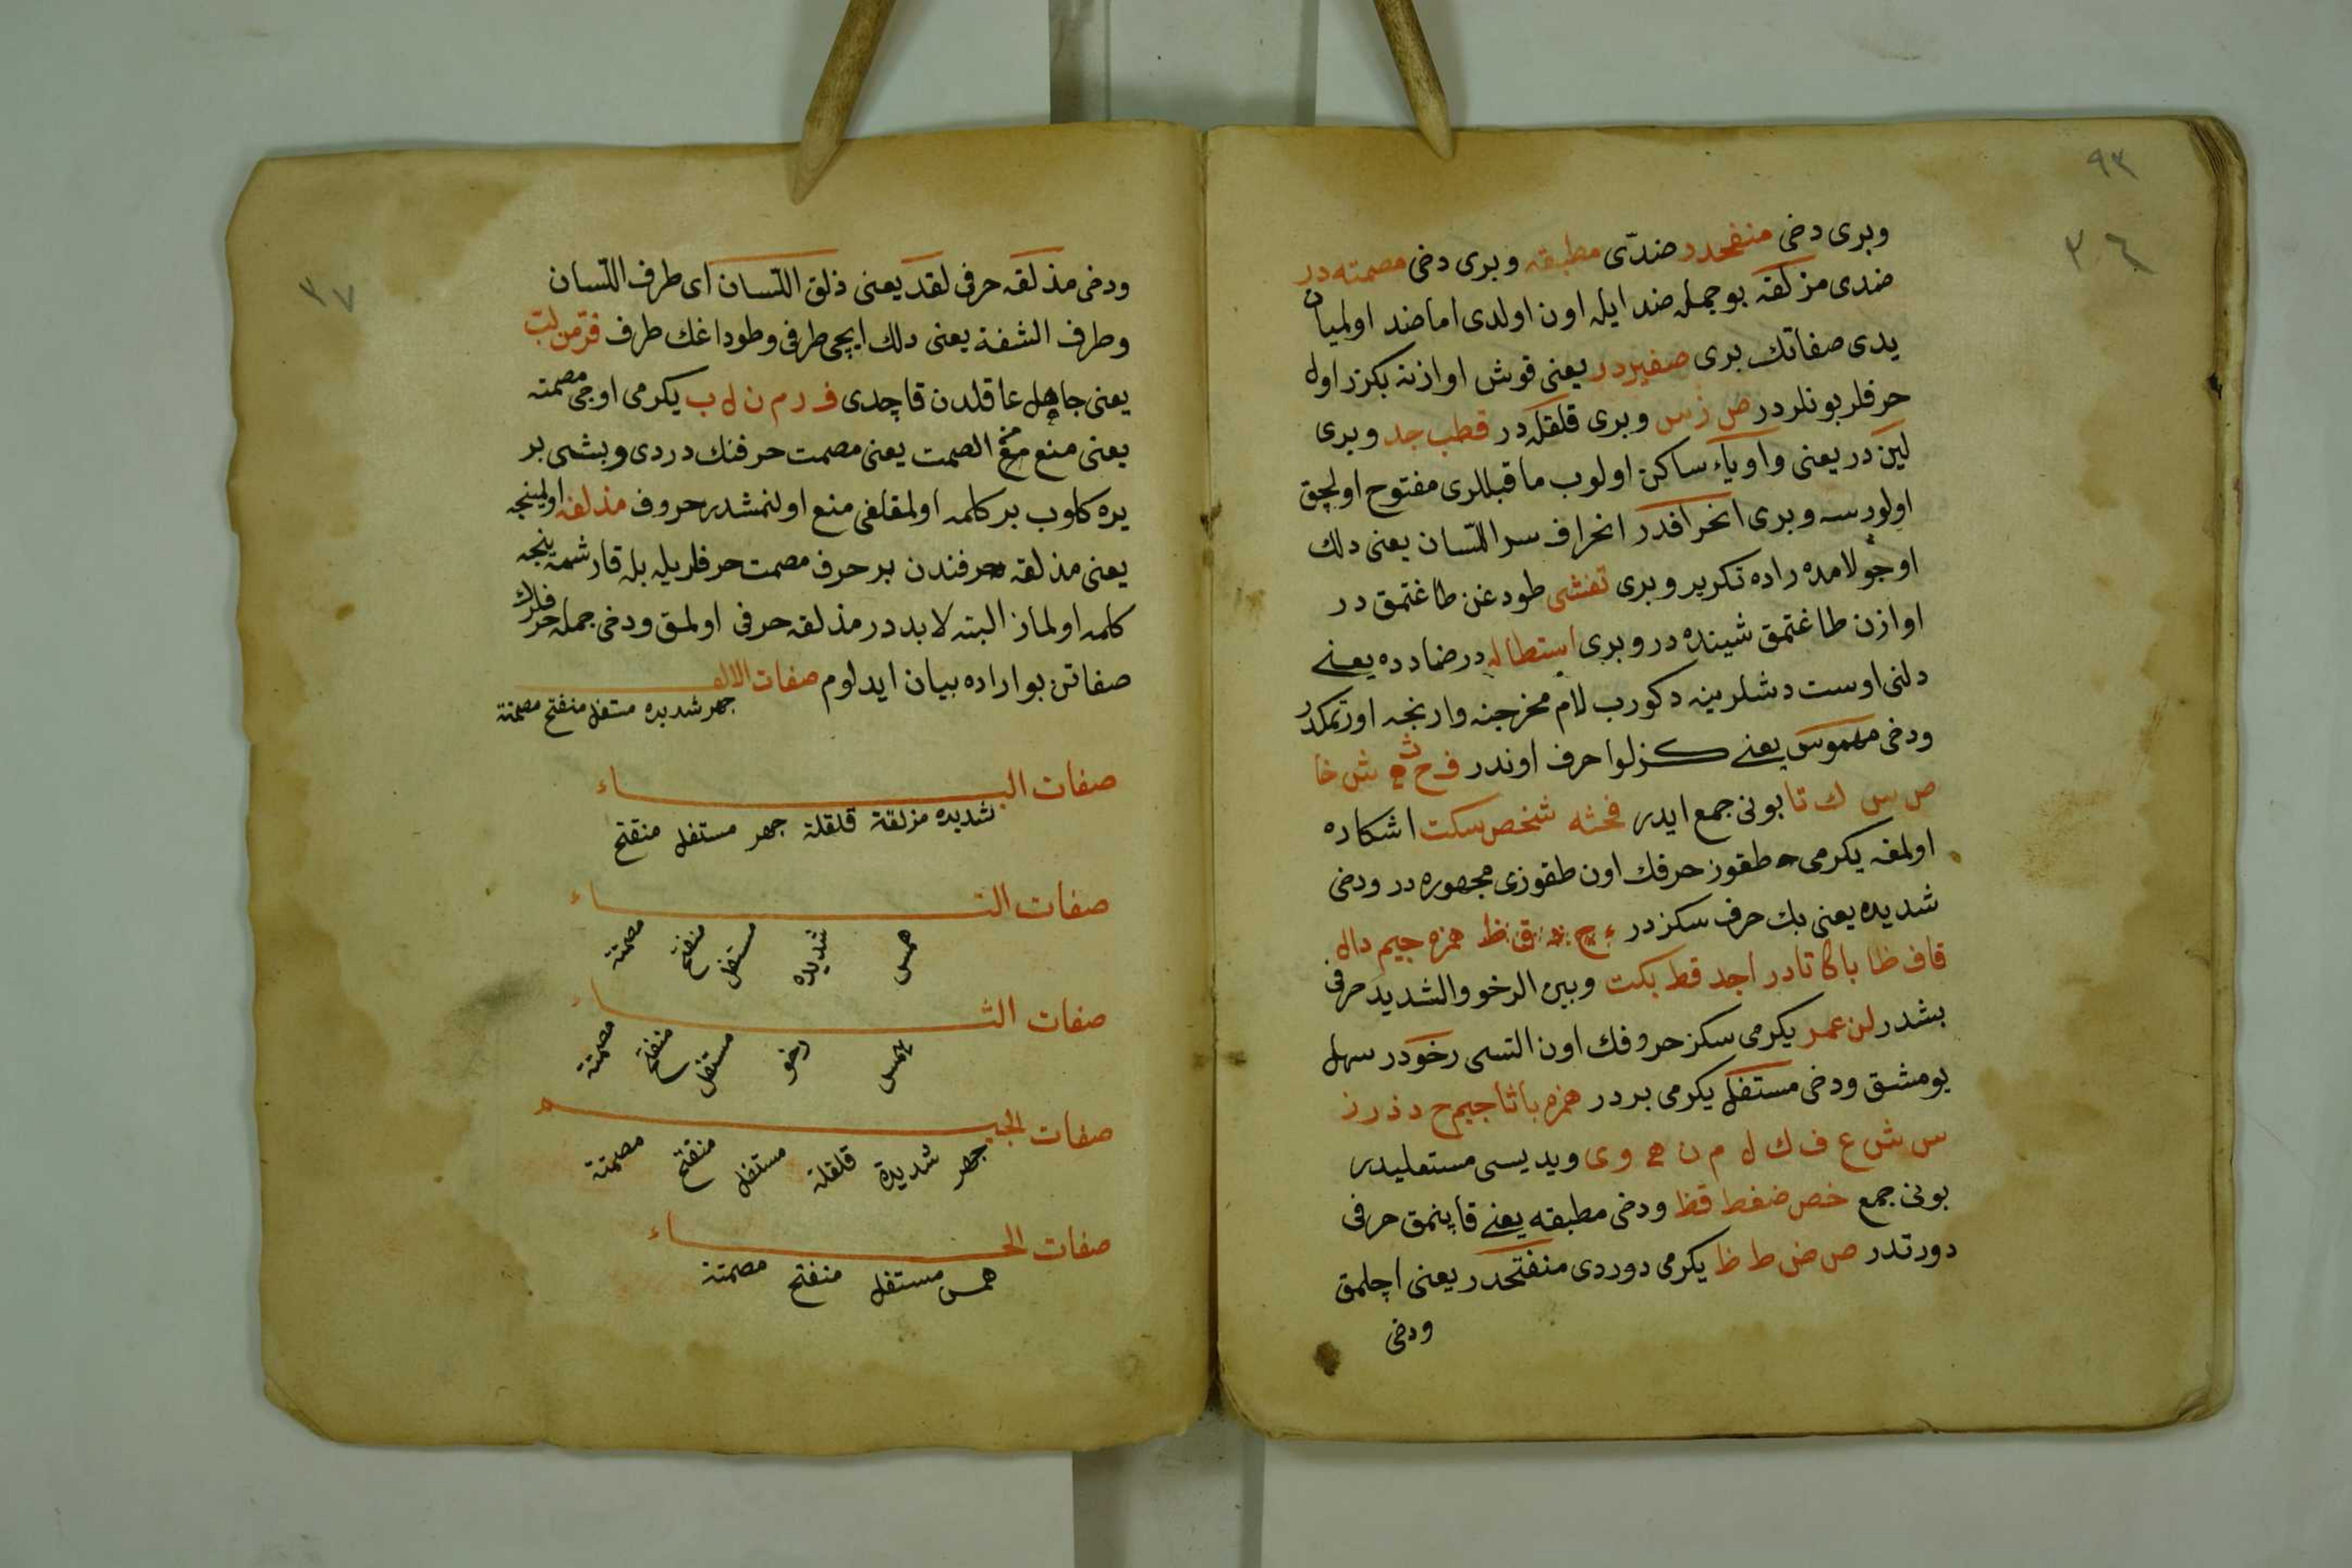 ٩٣
٣٦
وبرى دخى منفحدر ضدّى مطبقه وبرى دخى مصمته در
ضدى مزلقه بوجمله ضد ايله اون اولدى اما ضد اولميان
يدى صفاتك برى صفيردر يعنى قوش اوازنه بكزر اول
حرفلر بونلردر ص ز س وبرى قلقله در قطب جد وبرى
لين در يعنى واو ياء ساكن اولوب ماقبللرى مفتوح اولجق
اولورسه وبرى انحرافدر انحراف سر اللسان يعنى دلك
اوجو لامده راده تكرير وبرى تفشى طودغن طاغتمق در
اوازن طاغتمق شينده در وبرى استطاله در ضادده يعنے
دلنى اوست دشلرينه دكورب لام مخرجنه وارنجه اورتمكدر
ودخى مهموس يعنے كزلوا حرف اوندر ف ح ث ه ش خا
ص س ك تا بونى جمع ايدر فحثه شخص سكت اشكاده
اولمغه يكرمى طقوز حرفك اون طقوزى مجهوره در ودخى
شديده يعنى بك حرف سكزدر ء ج ق ظ همزه جيم دال
قاف ظا با كا تادر اجد قط بكت وبين الرخو والشديد حرفى
بشدر لن عمر يكرمى سكز حروفك اون التسى رخودر سهل
يومشق ودخى مستفل يكرمى بردر همزه با ثا جيم ح د ذ ر ز
س ش ع ف ك ل م ن ه و ى ويديسى مستعليدر
بونى جمع خص ضغط قظ ودخى مطبقه يعنے قاپنمق حرفى
دورتدر ص ض ط ظ يكرمى دوردى منفتحدر يعنى اچلمق
ودخى
٣٧
ودخى مذلقه حرفى لقد يعنى ذلق اللسان اى طرف اللسان
وطرف الشفة يعنى دلك ايچى طرفى وطوداغك طرف فرّ من لبّ
يعنى جاهل عاقلدن قاچدى ف ر م ن ل ب يكرمى اوجى مصمته
يعنى منع الصمت يعنى مصمت حرفنك دردى وبشى بر
يره كلوب بر كلمه اولمقلغى منع اولنمشدر حروف مذلقه اولمينجه
يعنى مذلقه حرفندن بر حرف مصمت حرفلريله بله قارشمه ينجه
كلمه اولماز البته لابددر مذلقه حرفى اولمق ودخى جمله حرفلرك
صفاتن بواراده بيان ايدلوم صفات الالف
جهر شديده مستفل منفتح مصمتة
صفات الباء
شديده مزلقة قلقلة جهر مستفل منفتح
صفات التاء
همس شديده مستفل منفتح مصمتة
صفات الثاء
همس رخو مستفل منفتح مصمتة
صفات الجيم
جهر شديدة قلقلة مستفل منفتح مصمتة
صفات الحاء
همس مستفل منفتح مصمتة